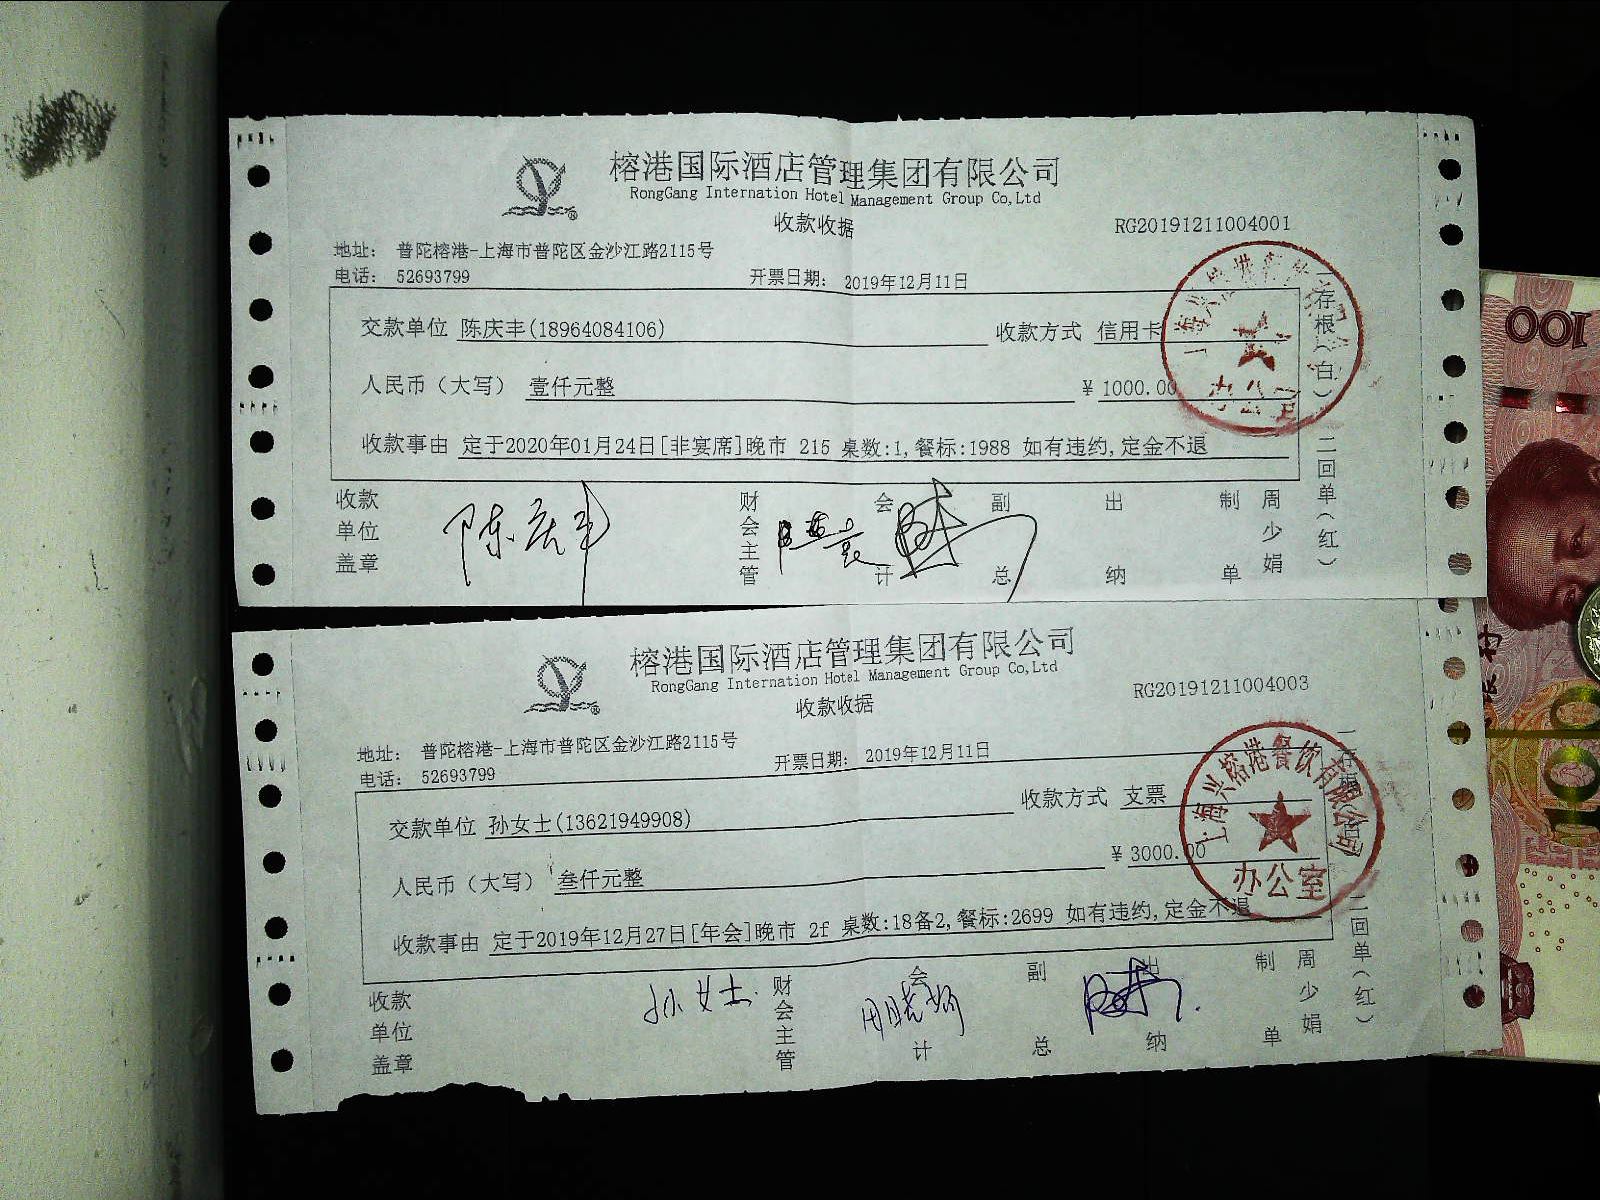 榕港国际酒店管理集团有限公司
RongGang Internation Hotel Management Group Co,Ltd
收款收据
RG20191211004001
地址： 普陀榕港-上海市普陀区金沙江路2115号
电话： 52693799
开票日期： 2019年12月11日
交款单位 陈庆丰(18964084106)
收款方式 信用卡
人民币（大写） 壹仟元整
¥ 1000.00
收款事由 定于2020年01月24日[非宴席]晚市 215 桌数:1,餐标:1988 如有违约,定金不退
收款单位盖章
陈庆丰
财会主管
会计
副总
出纳
制单
周少娟
一存根（白）
二回单（红）
100
榕港国际酒店管理集团有限公司
RongGang Internation Hotel Management Group Co,Ltd
收款收据
RG20191211004003
地址： 普陀榕港-上海市普陀区金沙江路2115号
电话： 52693799
开票日期： 2019年12月11日
交款单位 孙女士(13621949908)
收款方式 支票
人民币（大写） 叁仟元整
¥ 3000.00
收款事由 定于2019年12月27日[年会]晚市 2f 桌数:18备2,餐标:2699 如有违约,定金不退
上海兴榕港餐饮有限公司
办公室
收款单位盖章
孙女士
财会主管
会计
副总
出纳
制单
周少娟
二回单（红）
100